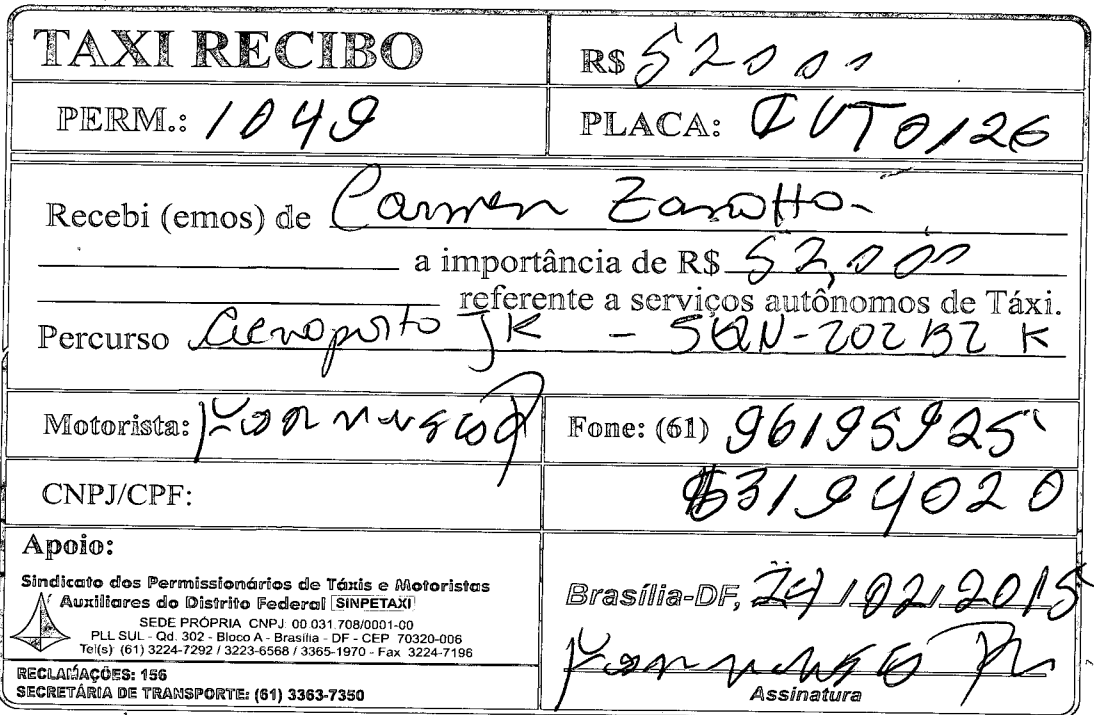 TAXI RECIBO
R$ 52,00
PERM.: 1049
PLACA: 0126
Recebi (emos) de Carmen Zanotto
a importância de R$ 52,00
referente a serviços autônomos de Táxi.
Percurso Aeroporto JK - SQN-202 BL K
Motorista:
Fone: (61) 96195925
CNPJ/CPF:
Apoio:
Sindicato dos Permissionários de Táxis e Motoristas
Auxiliares do Distrito Federal SINPETAXI
SEDE PRÓPRIA CNPJ: 00.031.708/0001-00
PLL SUL - Qd. 302 - Bloco A - Brasília - DF - CEP 70320-006
Tel(s): (61) 3224-7292 / 3223-6568 / 3365-1970 - Fax 3224-7196
RECLAMAÇÕES: 156
SECRETÁRIA DE TRANSPORTE: (61) 3363-7350
Brasília-DF, 24/02/2015
Assinatura